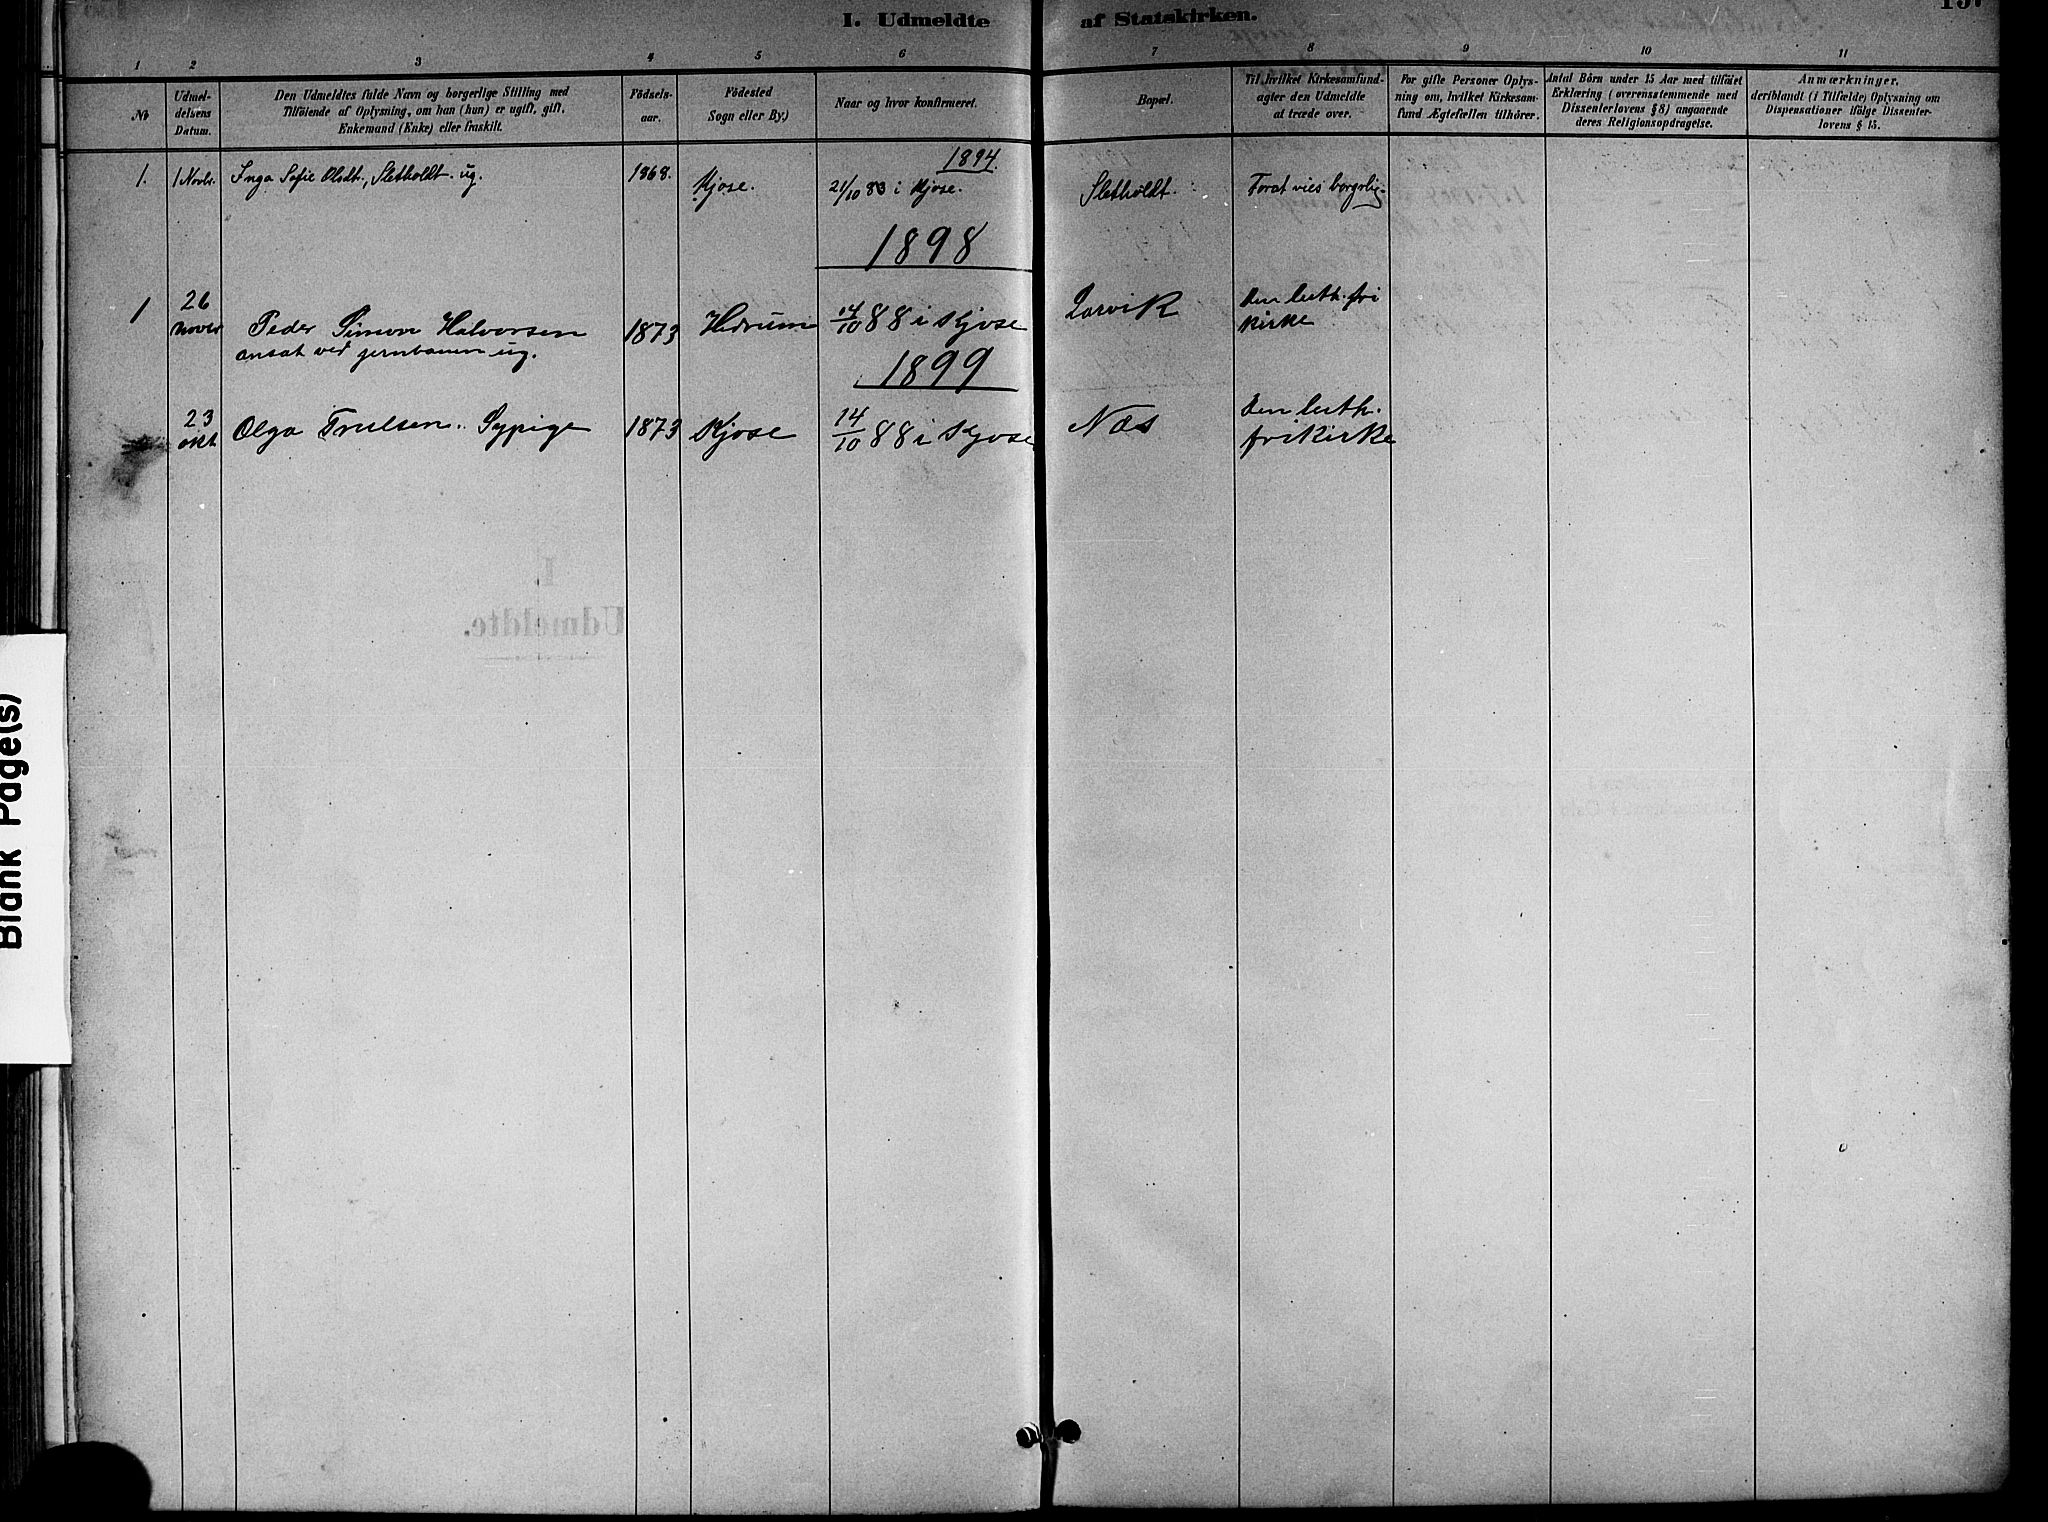 I. Udmeldte af Statskirken.
1 2 3 4 5 6 7 8 9 10 11
No
Udmel-
delsens
Datum.
Den Udmeldtes fulde Navn og borgerlige Stilling med
Tilföiende af Oplysning, om han (hun) er ugift, gift,
Enkemand (Enke) eller fraskilt.
Födsels-
aar.
Födested
Sogn eller By.)
Naar og hvor konfirmeret.
Bopæl.
Til hvilket Kirkesamfund-
agter den Udmeldte
at træde over.
For gifte Personer Oplys-
ning om, hvilket Kirkesam-
fund Ægtefællen tilhörer.
Antal Börn under 15 Aar med tilföiet
Erklæring (overensstemmende med
Dissenterlovens § 8) angaaende
deres Religionsopdragelse.
Anmærkninger,
deriblandt (i Tilfælde) Oplysning om
Dispensationer ifölge Dissenter-
lovens § 15.
1894.
1. 1 Novbr. Inga Sofie Olsdt., Sletholdt. ug. 1868. Kjose. 21/10 83 i Kjose. Sletholdt. For at vies borgerlig.
1898
1 26 Novbr Peder Simon Halvorsen 1873 Hedrum 14/10 88 i Kjose Larvik Den luth. fri
kirke
ansat ved jernbanen ug.
1899
23 okt Olga Trulsen. Sypige 1873 Kjose 14/10 88 i Kjose Næs Den luth.
frikirke
I.
Udmeldte.
Blank Page(s)